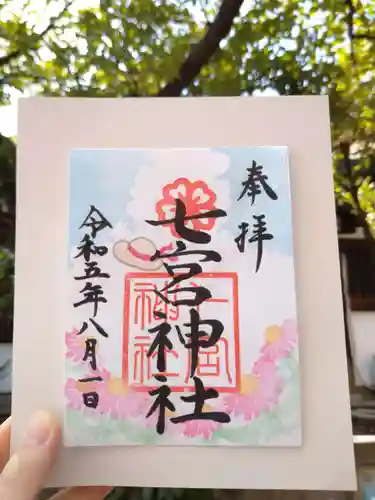 奉拝
七宮神社
七宮神社
令和五年八月一日